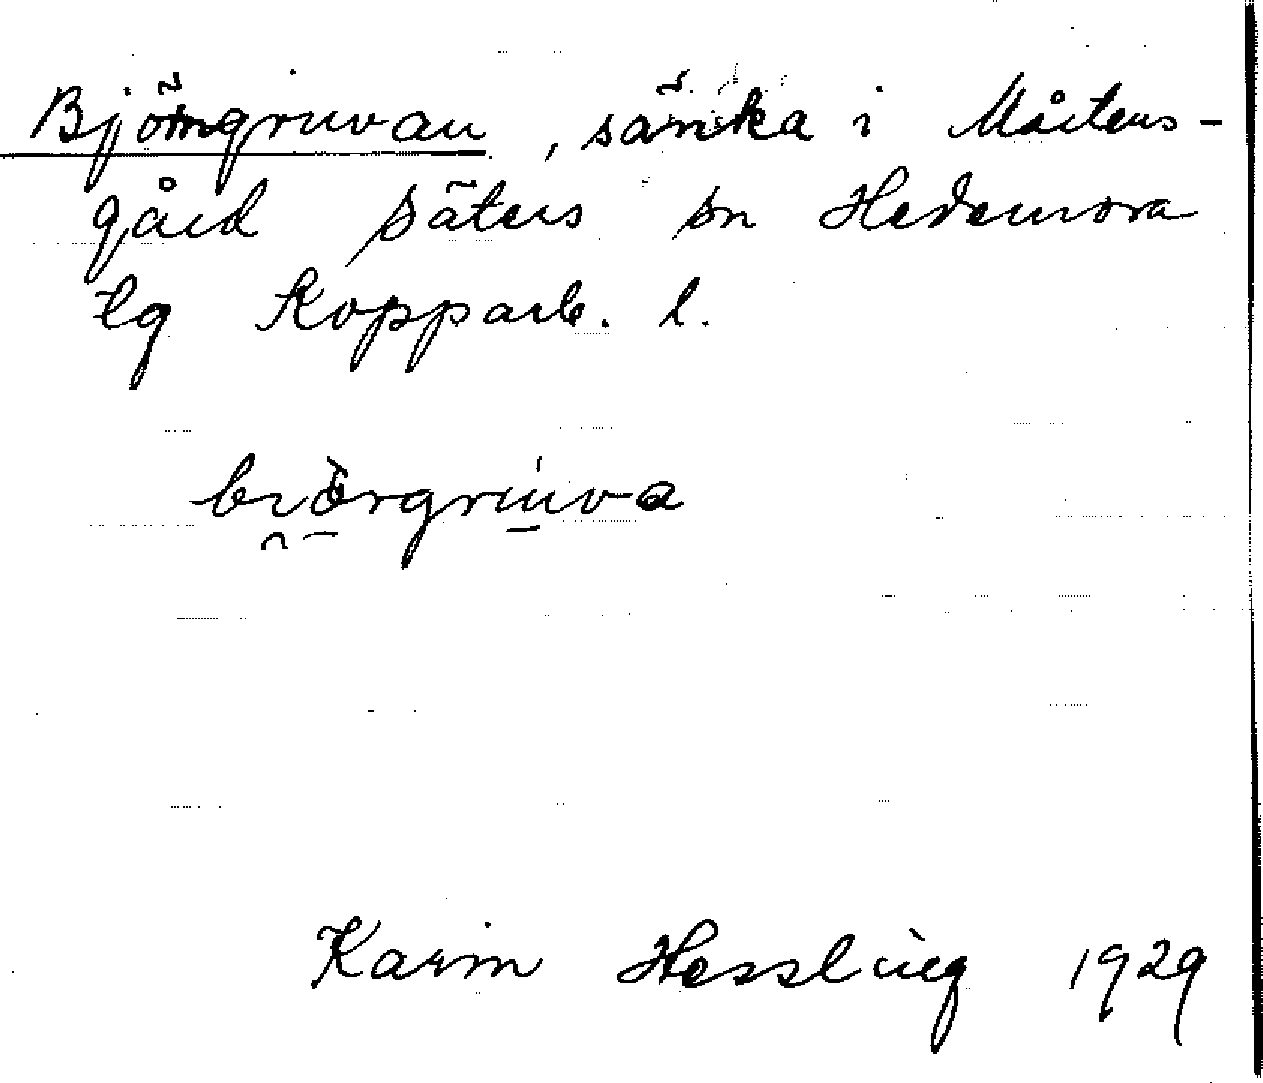 Björngruvan, sänka i Mårtens-
gård Säters sn Hedemora
tg Kopparb. l.
Karin Hessling 1929